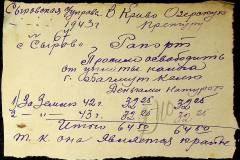 Сыровская Управа В Криво Озерскую
1943 г.
№ 67
с. Сырово Рапорт
Прошу освободить
от уплаты налога
г.
Деньгами Натурой
1) За Землю 42 г. 32 25 32 25
2 — " — 43 г. 32 25 32 25
Итого 64 50 64 50
т. к. она является